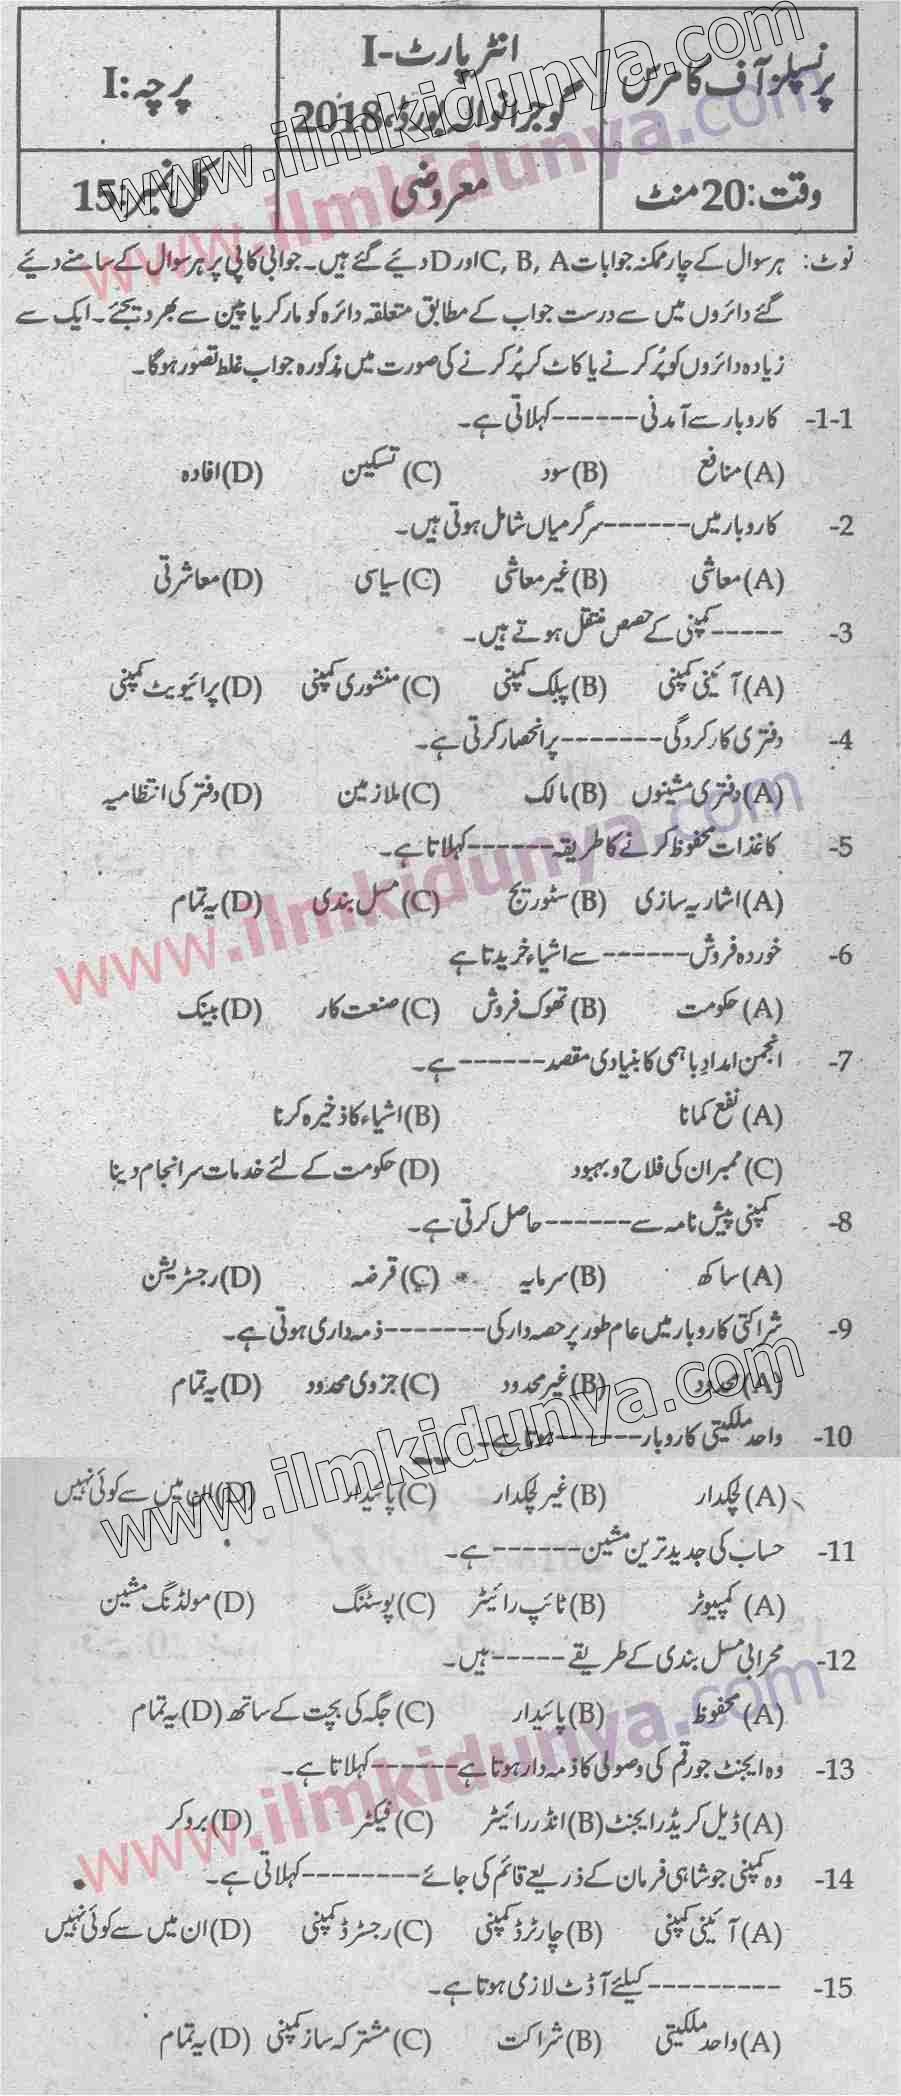 پرنسپلز آف کامرس
انٹر پارٹ-I
گوجرانوالہ بورڈ، 2018
پرچہ: I
وقت: 20 منٹ
معروضی
کل نمبر: 15
نوٹ: ہر سوال کے چار ممکنہ جوابات C, B, A اور D دیئے گئے ہیں۔ جوابی کاپی پر ہر سوال کے سامنے دیئے
گئے دائروں میں سے درست جواب کے مطابق متعلقہ دائرہ کو مارکر یا پین سے بھر دیجئے۔ ایک سے
زیادہ دائروں کو پُر کرنے یا کاٹ کر پُر کرنے کی صورت میں مذکورہ جواب غلط تصور ہوگا۔
1-1- کاروبار سے آمدنی ------ کہلاتی ہے۔
(A) منافع (B) سود (C) تسکین (D) افادہ
2- کاروبار میں ------ سرگرمیاں شامل ہوتی ہیں۔
(A) معاشی (B) غیر معاشی (C) سیاسی (D) معاشرتی
3- ----- کمپنی کے حصص منتقل ہوتے ہیں۔
(A) آئینی کمپنی (B) پبلک کمپنی (C) منشوری کمپنی (D) پرائیویٹ کمپنی
4- دفتری کارکردگی ------- پر انحصار کرتی ہے۔
(A) دفتری مشینوں (B) مالک (C) ملازمین (D) دفتر کی انتظامیہ
5- کاغذات محفوظ کرنے کا طریقہ ------ کہلاتا ہے۔
(A) اشاریہ سازی (B) سٹوریج (C) مسل بندی (D) یہ تمام
6- خوردہ فروش ------ سے اشیاء خریدتا ہے
(A) حکومت (B) تھوک فروش (C) صنعت کار (D) بینک
7- انجمن امداد باہمی کا بنیادی مقصد ------ ہے۔
(A) نفع کمانا (B) اشیاء کا ذخیرہ کرنا
(C) ممبران کی فلاح و بہبود (D) حکومت کے لئے خدمات سرانجام دینا
8- کمپنی پیش نامہ سے ------ حاصل کرتی ہے۔
(A) ساکھ (B) سرمایہ (C) قرضہ (D) رجسٹریشن
9- شراکتی کاروبار میں عام طور پر حصہ دار کی ------- ذمہ داری ہوتی ہے۔
(A) محدود (B) غیر محدود (C) جزوی محدود (D) یہ تمام
10- واحد ملکیتی کاروبار ------ ہوتا ہے۔
(A) لچکدار (B) غیر لچکدار (C) پائیدار (D) ان میں سے کوئی نہیں
11- حساب کی جدید ترین مشین ------ ہے۔
(A) کمپیوٹر (B) ٹائپ رائیٹر (C) پوسٹنگ (D) مولڈنگ مشین
12- محرابی مسل بندی کے طریقے ----- ہیں۔
(A) محفوظ (B) پائیدار (C) جگہ کی بچت کے ساتھ (D) یہ تمام
13- وہ ایجنٹ جو رقم کی وصولی کا ذمہ دار ہوتا ہے ------ کہلاتا ہے۔
(A) ڈیل کریڈر ایجنٹ (B) انڈر رائیٹر (C) فیکٹر (D) بروکر
14- وہ کمپنی جو شاہی فرمان کے ذریعے قائم کی جائے -------- کہلاتی ہے۔
(A) آئینی کمپنی (B) چارٹرڈ کمپنی (C) رجسٹرڈ کمپنی (D) ان میں سے کوئی نہیں
15- --------- کیلئے آڈٹ لازمی ہوتا ہے۔
(A) واحد ملکیتی (B) شراکت (C) مشترکہ ساز کمپنی (D) یہ تمام
www.ilmkidunya.com
www.ilmkidunya.com
www.ilmkidunya.com
www.ilmkidunya.com
www.ilmkidunya.com